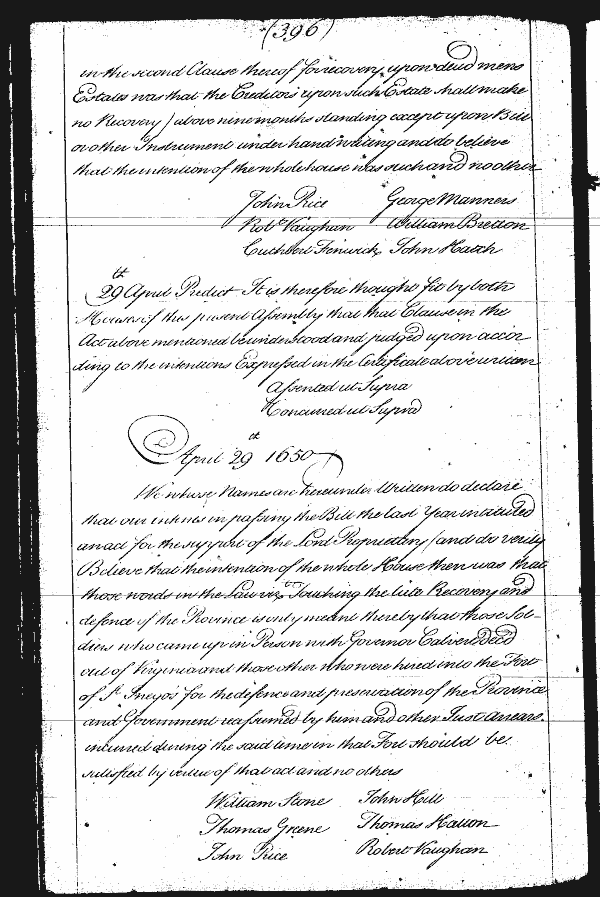 (396)
in the second Clause thereof for recovery upon dead mens
Estates was that the Creditors upon such Estate shall make
no Recovery (above nine months standing except upon Bill
or other Instrument under hand writing and do believe
that the intention of the whole house was such and no other
John Rice George Manners
Robt Vaughan William Bretton
Cuthbert Fenwick John Hatch
29th April Predict It is therefore thought fit by both
Houses of this present Assembly that that Clause in the
Act above mentioned be understood and judged upon accor
ding to the intentions Expressed in the Certificate above written
Assented ut Supra
Concurred ut Supra
April 29th 1650
We whose Names are hereunder Written do declare
that our intents in passing the Bill the last Year intituled
an act for the support of the Lord Proprietary (and do verily
Believe that the intention of the whole House then was that
those words in the Law vizt Touching the late Recovery and
defence of the Province is only meant thereby that those Sol-
diers who came up in Person with Governor Calvert Decd
out of Virginia and those other who were hired into the Fort
of St Inegos for the defence and preservation of the Province
and Government reassumed by him and other Just arrears
incurred during the said time in that Fort should be
satisfied by virtue of that act and no others
William Stone John Hill
Thomas Greene Thomas Hatton
John Price Robert Vaughan